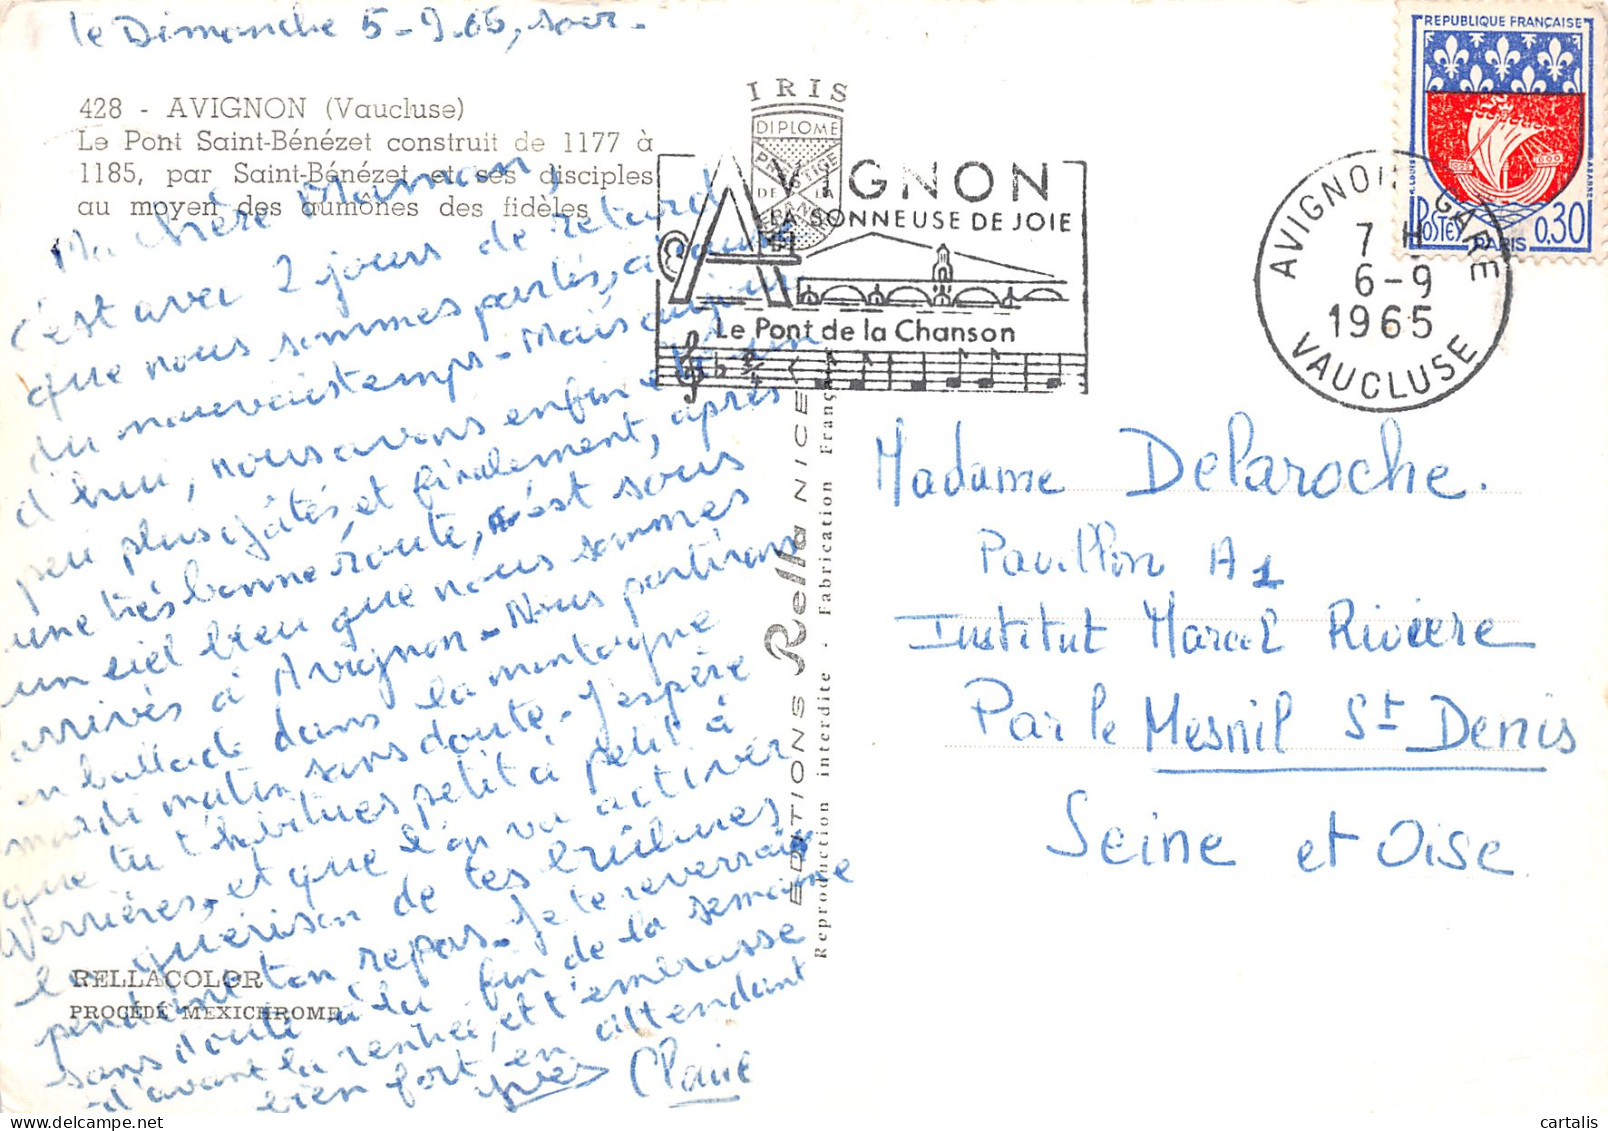 le Dimanche 5-9.65, soir-
428 - AVIGNON (Vaucluse)
Le Pont Saint-Bénézet construit de 1177 à
1185, par Saint-Bénézet et ses disciples
au moyen des aumônes des fidèles
Ma chère Maman,
c'est avec 2 jours de retard
que nous sommes partis, à cause
du mauvais temps - Mais aujour
d'hui, nous avons enfin été un
peu plus gâtés, et finalement, après
une très bonne route, c'est sous
un ciel bleu que nous sommes
arrivés à Avignon - Nous partirons
en ballade dans la montagne
mardi matin sans doute - J'espère
que tu t'habitues petit à petit à
Verrières, et que l'on va activer
la guérison de tes brûlures
pendant ton repos - Je te reverrai
sans doute à la fin de la semaine
d'avant la rentrée, et t'embrasse
bien fort en attendant
Yves Claire
RELLACOLOR
PROCÉDÉ MEXICHROME
IRIS
DIPLOME
PRESTIGE
DE LA
FRANCE
AVIGNON
LA SONNEUSE DE JOIE
Le Pont de la Chanson
EDITIONS Rella NICE
Reproduction interdite - Fabrication Franç
REPUBLIQUE FRANÇAISE
POSTES
PARIS
0,30
AVIGNON GARE
7 H
6-9
1965
VAUCLUSE
Madame Delaroche.
Pavillon A1
Institut Marcel Rivière
Par le Mesnil St Denis
Seine et Oise
cartalis